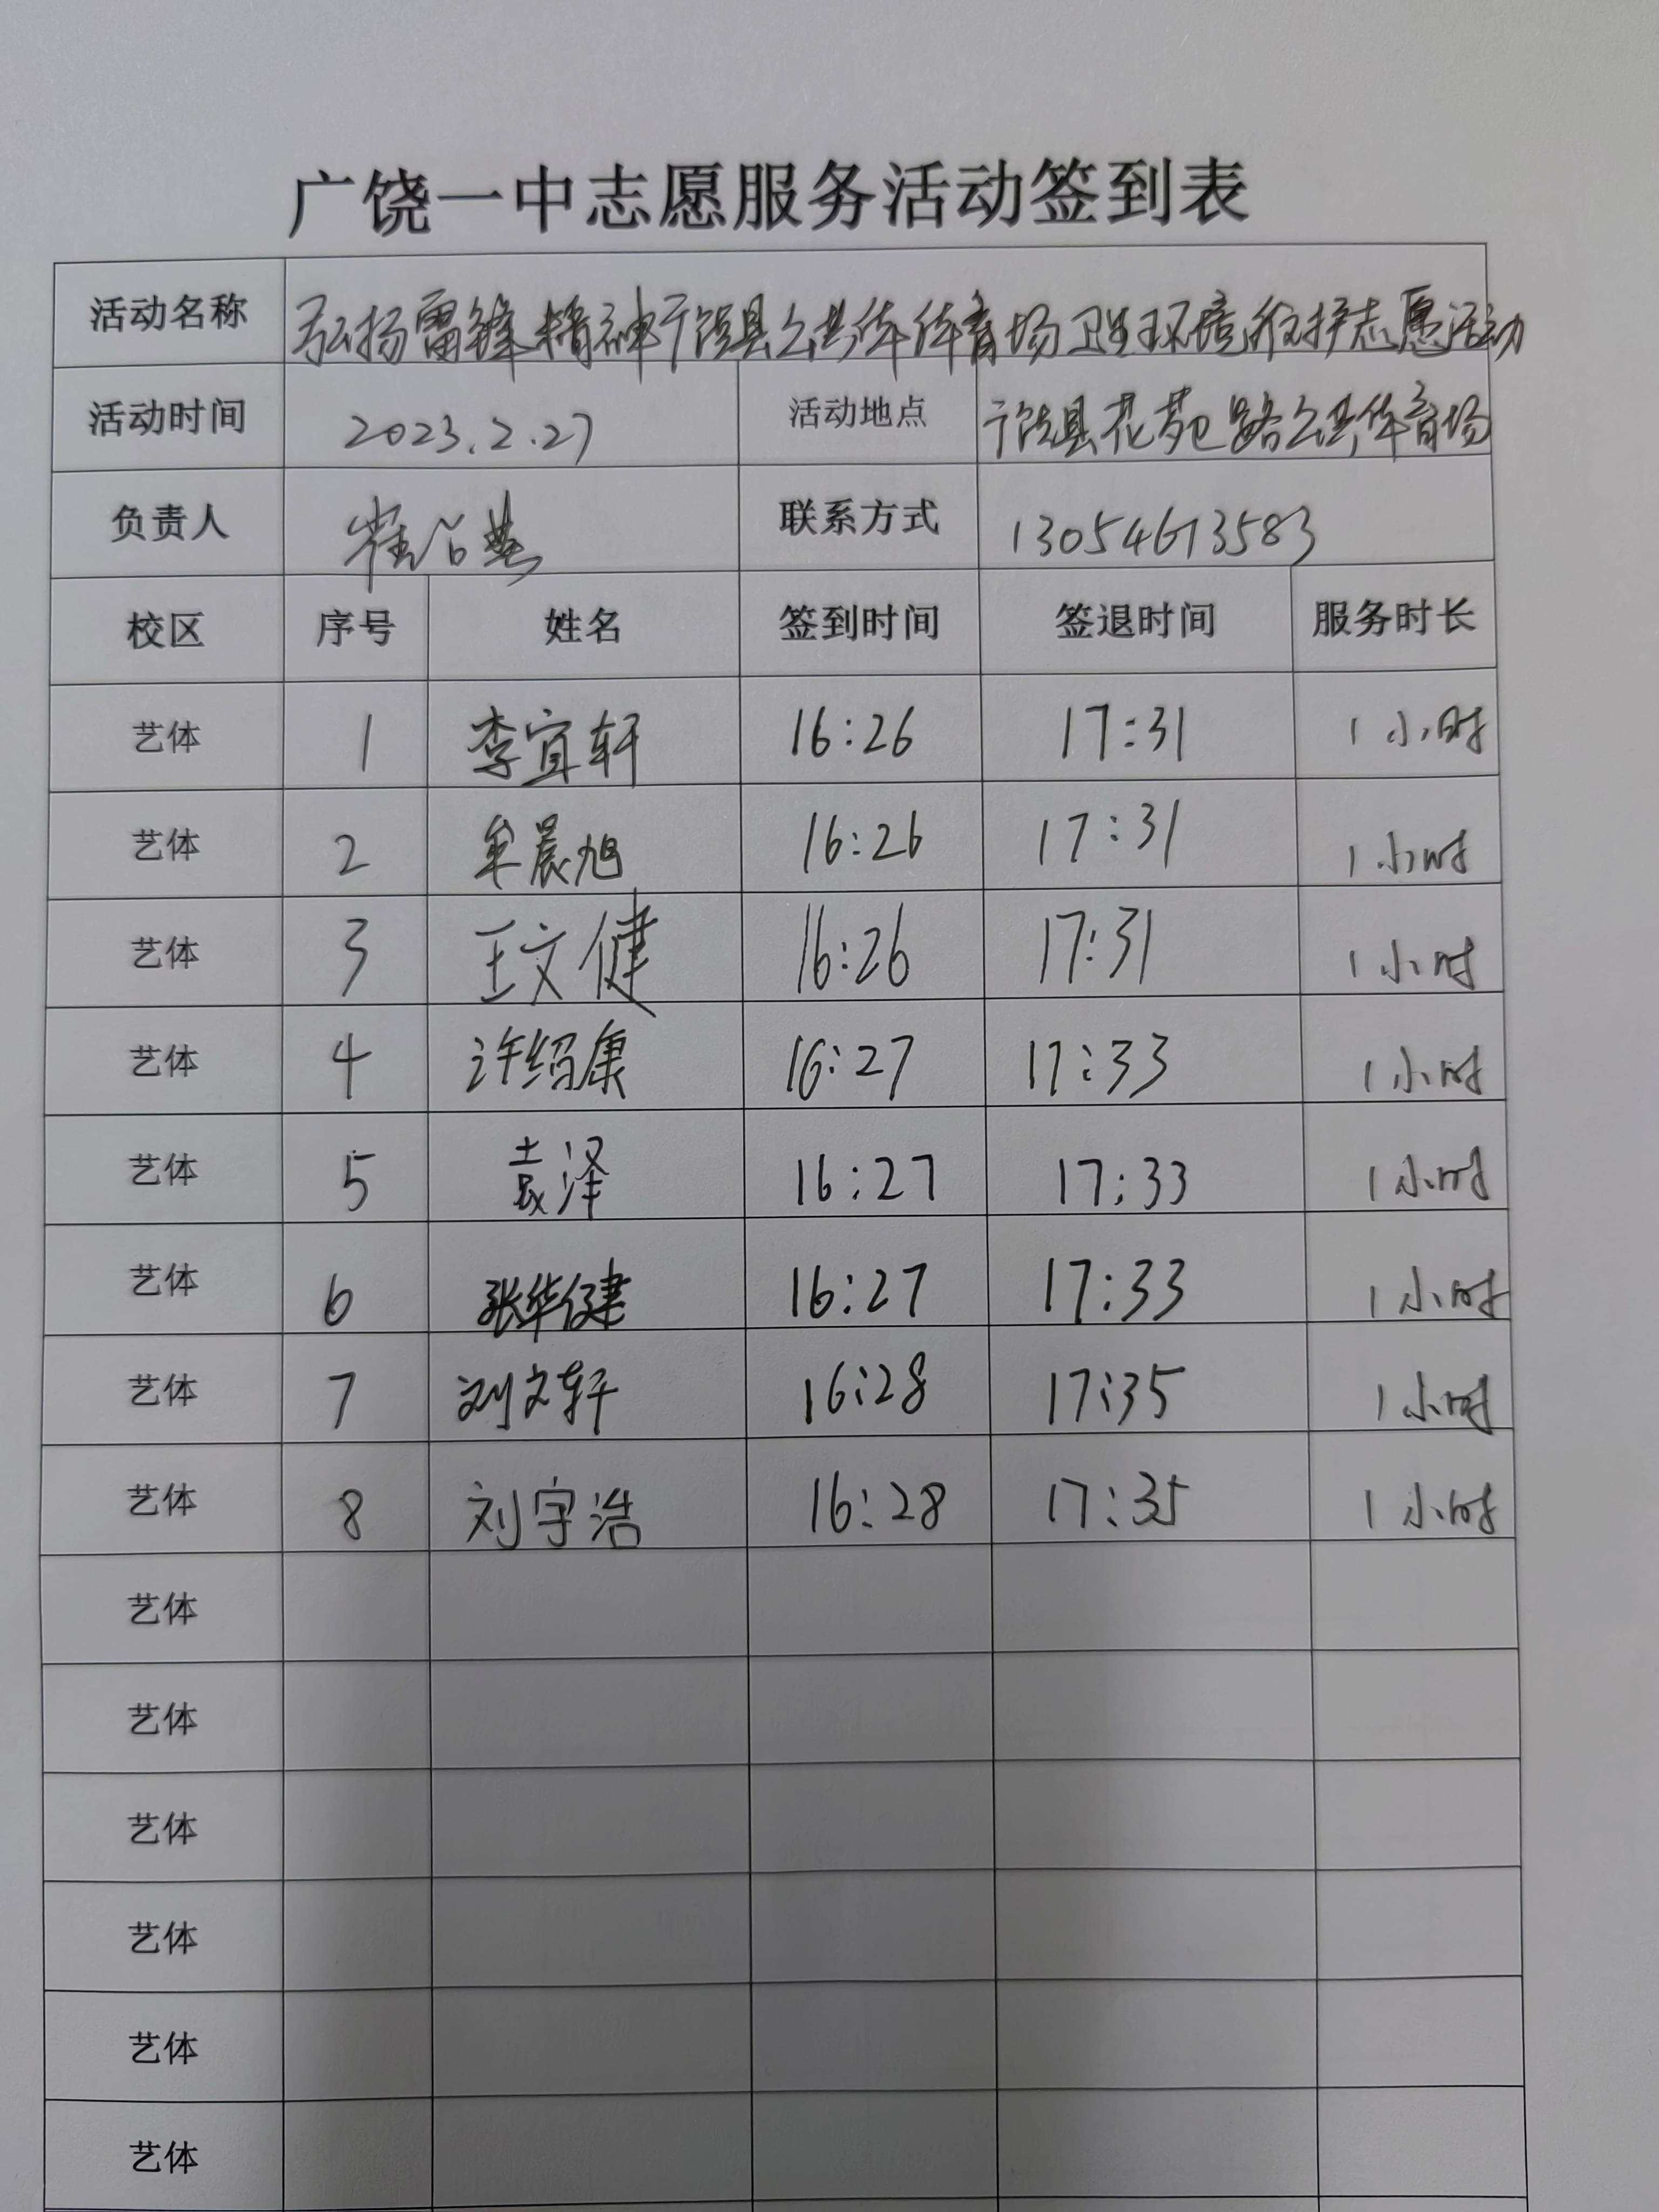 广饶一中志愿服务活动签到表
活动名称 弘扬雷锋精神广饶县公共体体育场卫生环境维护志愿活动
活动时间 2023.2.27 活动地点 广饶县花苑路公共体育场
负责人 崔 联系方式 13054613583
校区 序号 姓名 签到时间 签退时间 服务时长
艺体 1 李宜轩 16:26 17:31 1小时
艺体 2 牟晨旭 16:26 17:31 1小时
艺体 3 王文健 16:26 17:31 1小时
艺体 4 许绍康 16:27 17:33 1小时
艺体 5 袁泽 16:27 17:33 1小时
艺体 6 张华健 16:27 17:33 1小时
艺体 7 刘文轩 16:28 17:35 1小时
艺体 8 刘宇浩 16:28 17:35 1小时
艺体
艺体
艺体
艺体
艺体
艺体